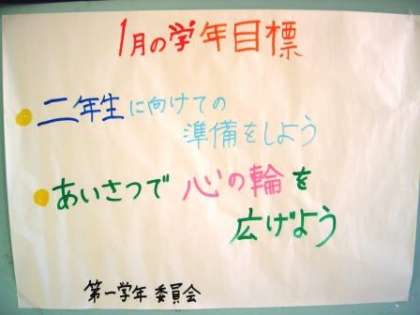 1月の学年目標
二年生に向けての
準備をしよう
あいさつで心の輪を
広げよう
第一学年委員会